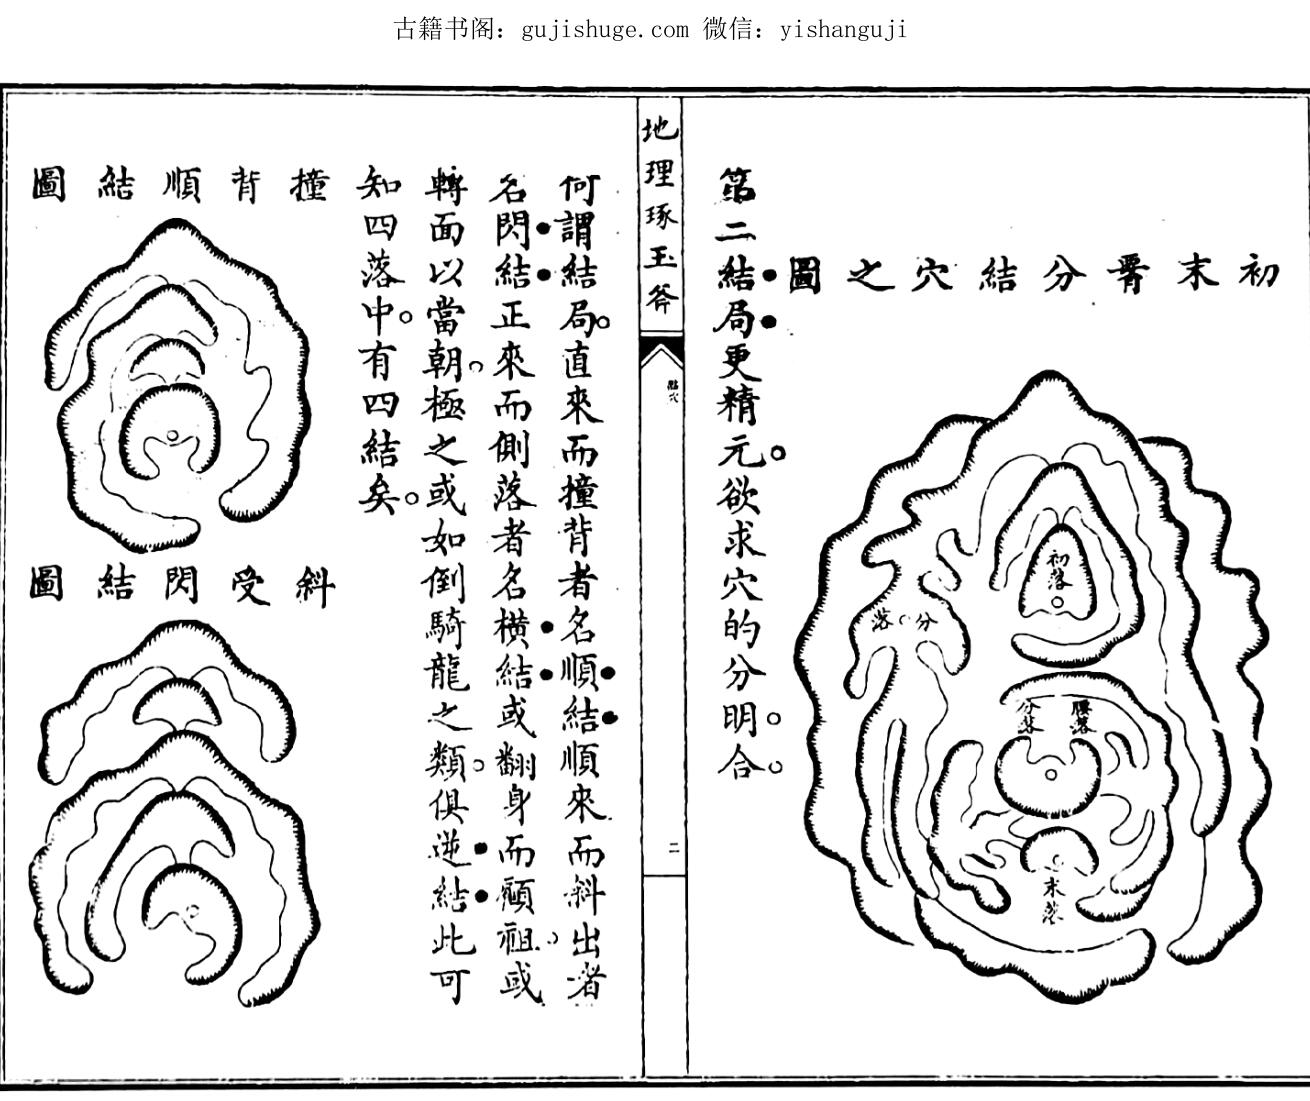 古籍书阁：gujishuge.com 微信：yishanguji
初末分結穴之圖
初落
分落
腰落
分落
末落
第二結局更精元。欲求穴的分明。合。
地理琢玉斧
點穴
二
何謂結局。直來而撞背者名順結順來而斜出者
名閃結正來而側落者名橫結或翻身而顧祖。或
轉面以當朝。極之或如倒騎龍之類。俱逆結此可
知四落中。有四結矣。
撞背順結圖
斜受閃結圖